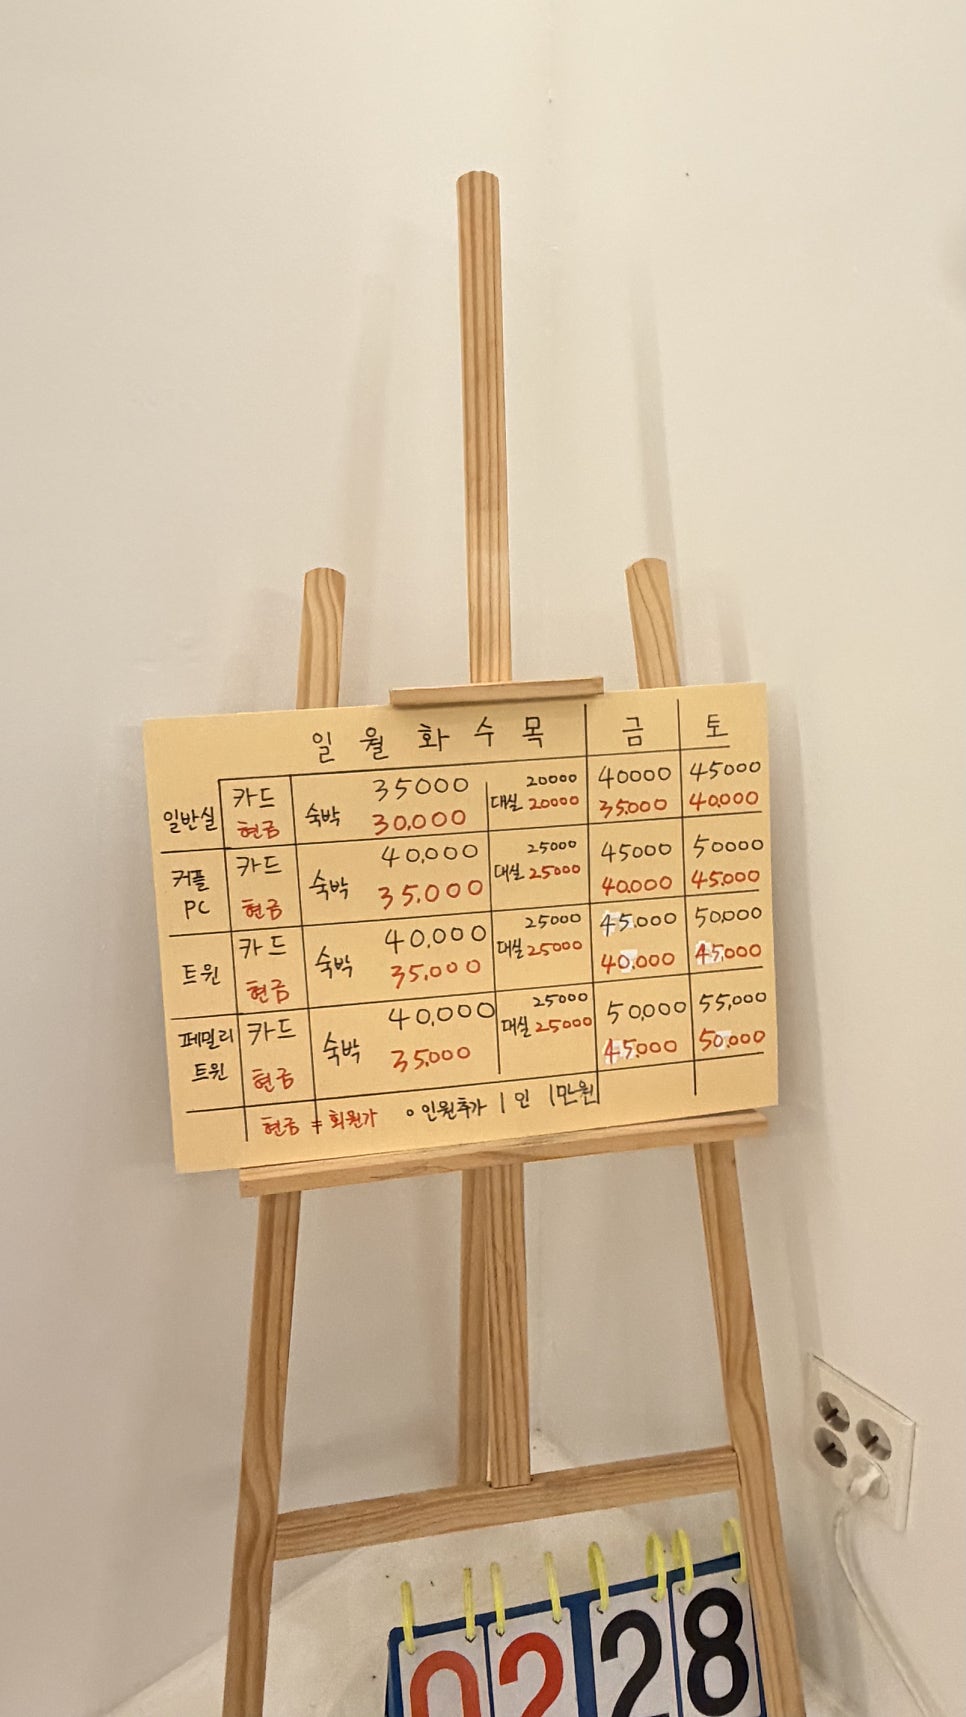 일 월 화 수 목 금 토
일반실 카드 숙박 35000 대실 20000 40000 45000
현금 30,000 20000 35,000 40,000
커플 PC 카드 숙박 40,000 대실 25000 45000 50000
현금 35,000 25000 40,000 45,000
트윈 카드 숙박 40,000 대실 25000 45,000 50,000
현금 35,000 25000 40,000 45,000
페밀리 트윈 카드 숙박 40,000 대실 25000 50,000 55,000
현금 35,000 25000 45,000 50,000
현금 ≠ 회원가 ∘ 인원추가 1인 1만원
02 28